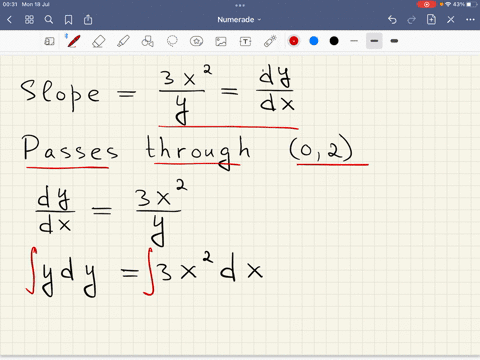 00:31 Mon 18 Jul 43%
Numerade
Slope = 3x²/y = dy/dx
Passes through (0,2)
dy/dx = 3x²/y
∫y dy = ∫3x² dx